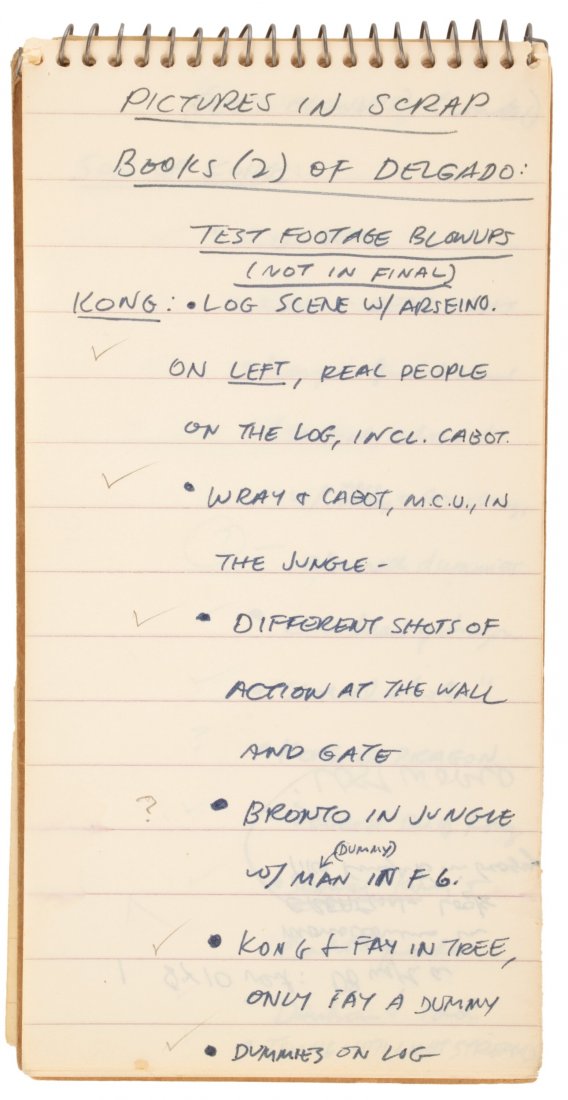 PICTURES IN SCRAP
BOOKS (2) OF DELGADO:
TEST FOOTAGE BLOWUPS
(NOT IN FINAL)
KONG: • LOG SCENE W/ ARSEINO.
ON LEFT, REAL PEOPLE
ON THE LOG, INCL. CABOT.
• WRAY & CABOT, M.C.U., IN
THE JUNGLE -
• DIFFERENT SHOTS OF
ACTION AT THE WALL
AND GATE
? • BRONTO IN JUNGLE
(DUMMY)
W/ MAN IN F.G.
• KONG & FAY IN TREE,
ONLY FAY A DUMMY
• DUMMIES ON LOG